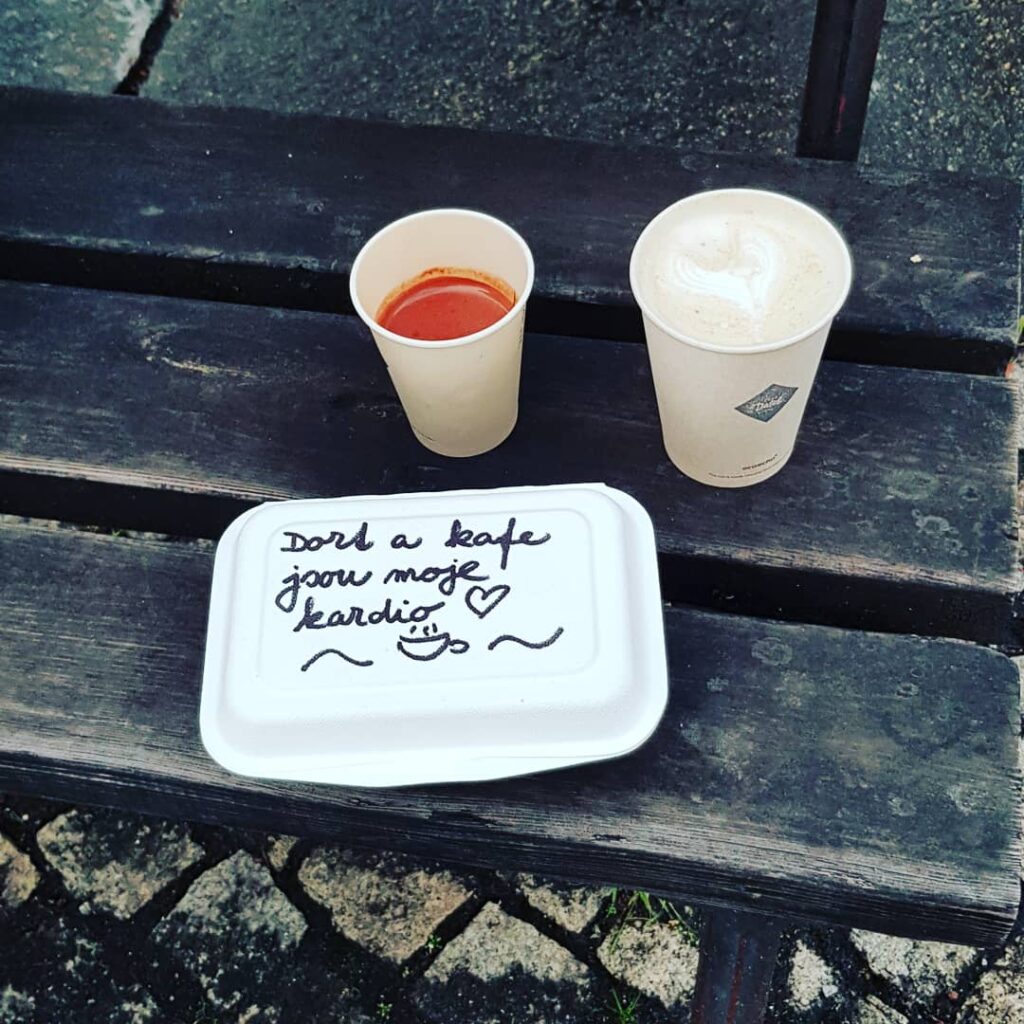 Dort a kafe
jsou moje
kardio